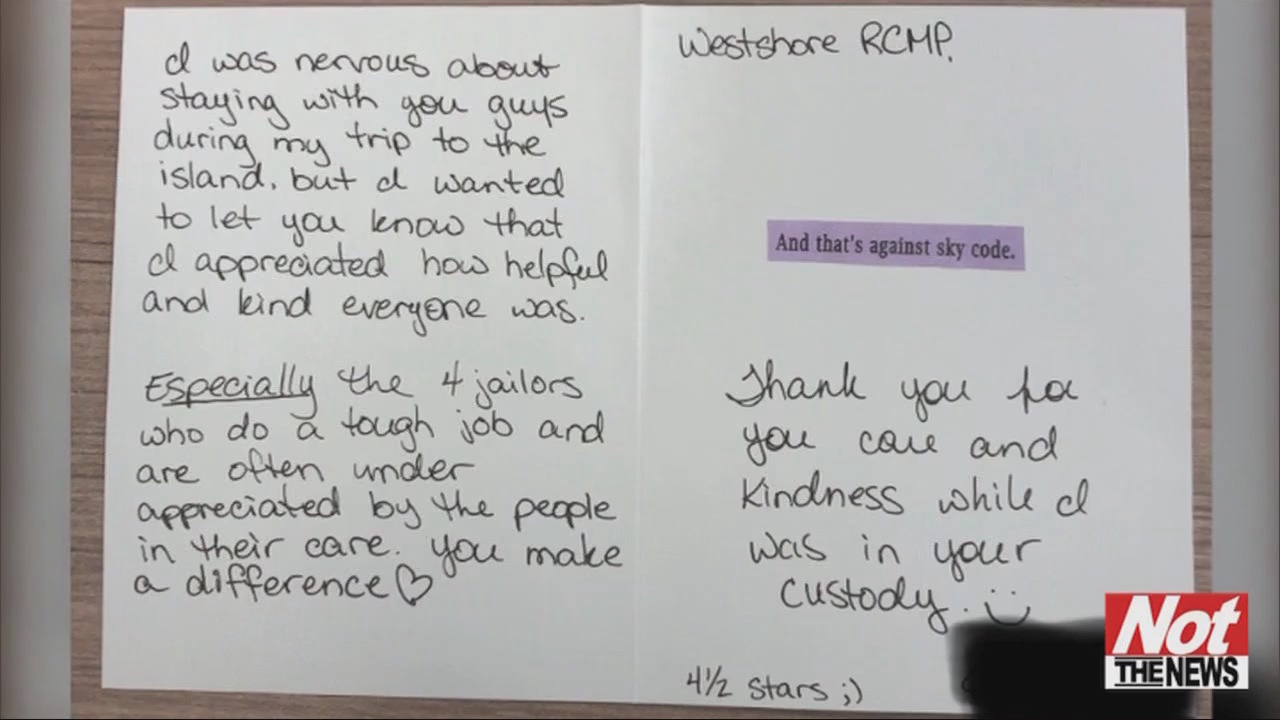 I was nervous about
staying with you guys
during my trip to the
island, but I wanted
to let you know that
I appreciated how helpful
and kind everyone was.
Especially the 4 jailors
who do a tough job and
are often under
appreciated by the people
in their care. You make
a difference♡
Westshore RCMP.
And that's against sky code.
Thank you for
you care and
kindness while I
was in your
custody. :)
4½ stars ;)
Not
THE NEWS